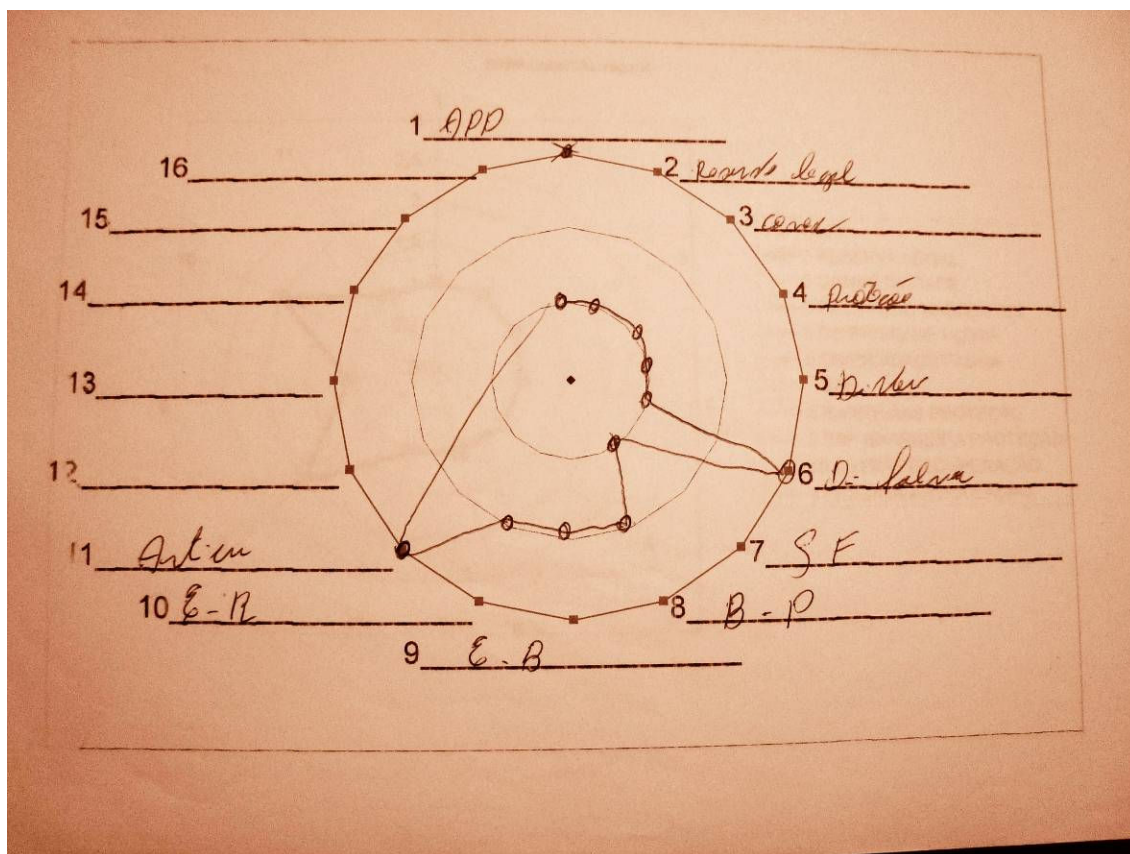 1 APP
2 Reserva legal
3 conex
4 Proteção
5 Diver
6 D- Salva
7 S F
8 B - P
9 E - B
10 E - R
11 Artien
12
13
14
15
16